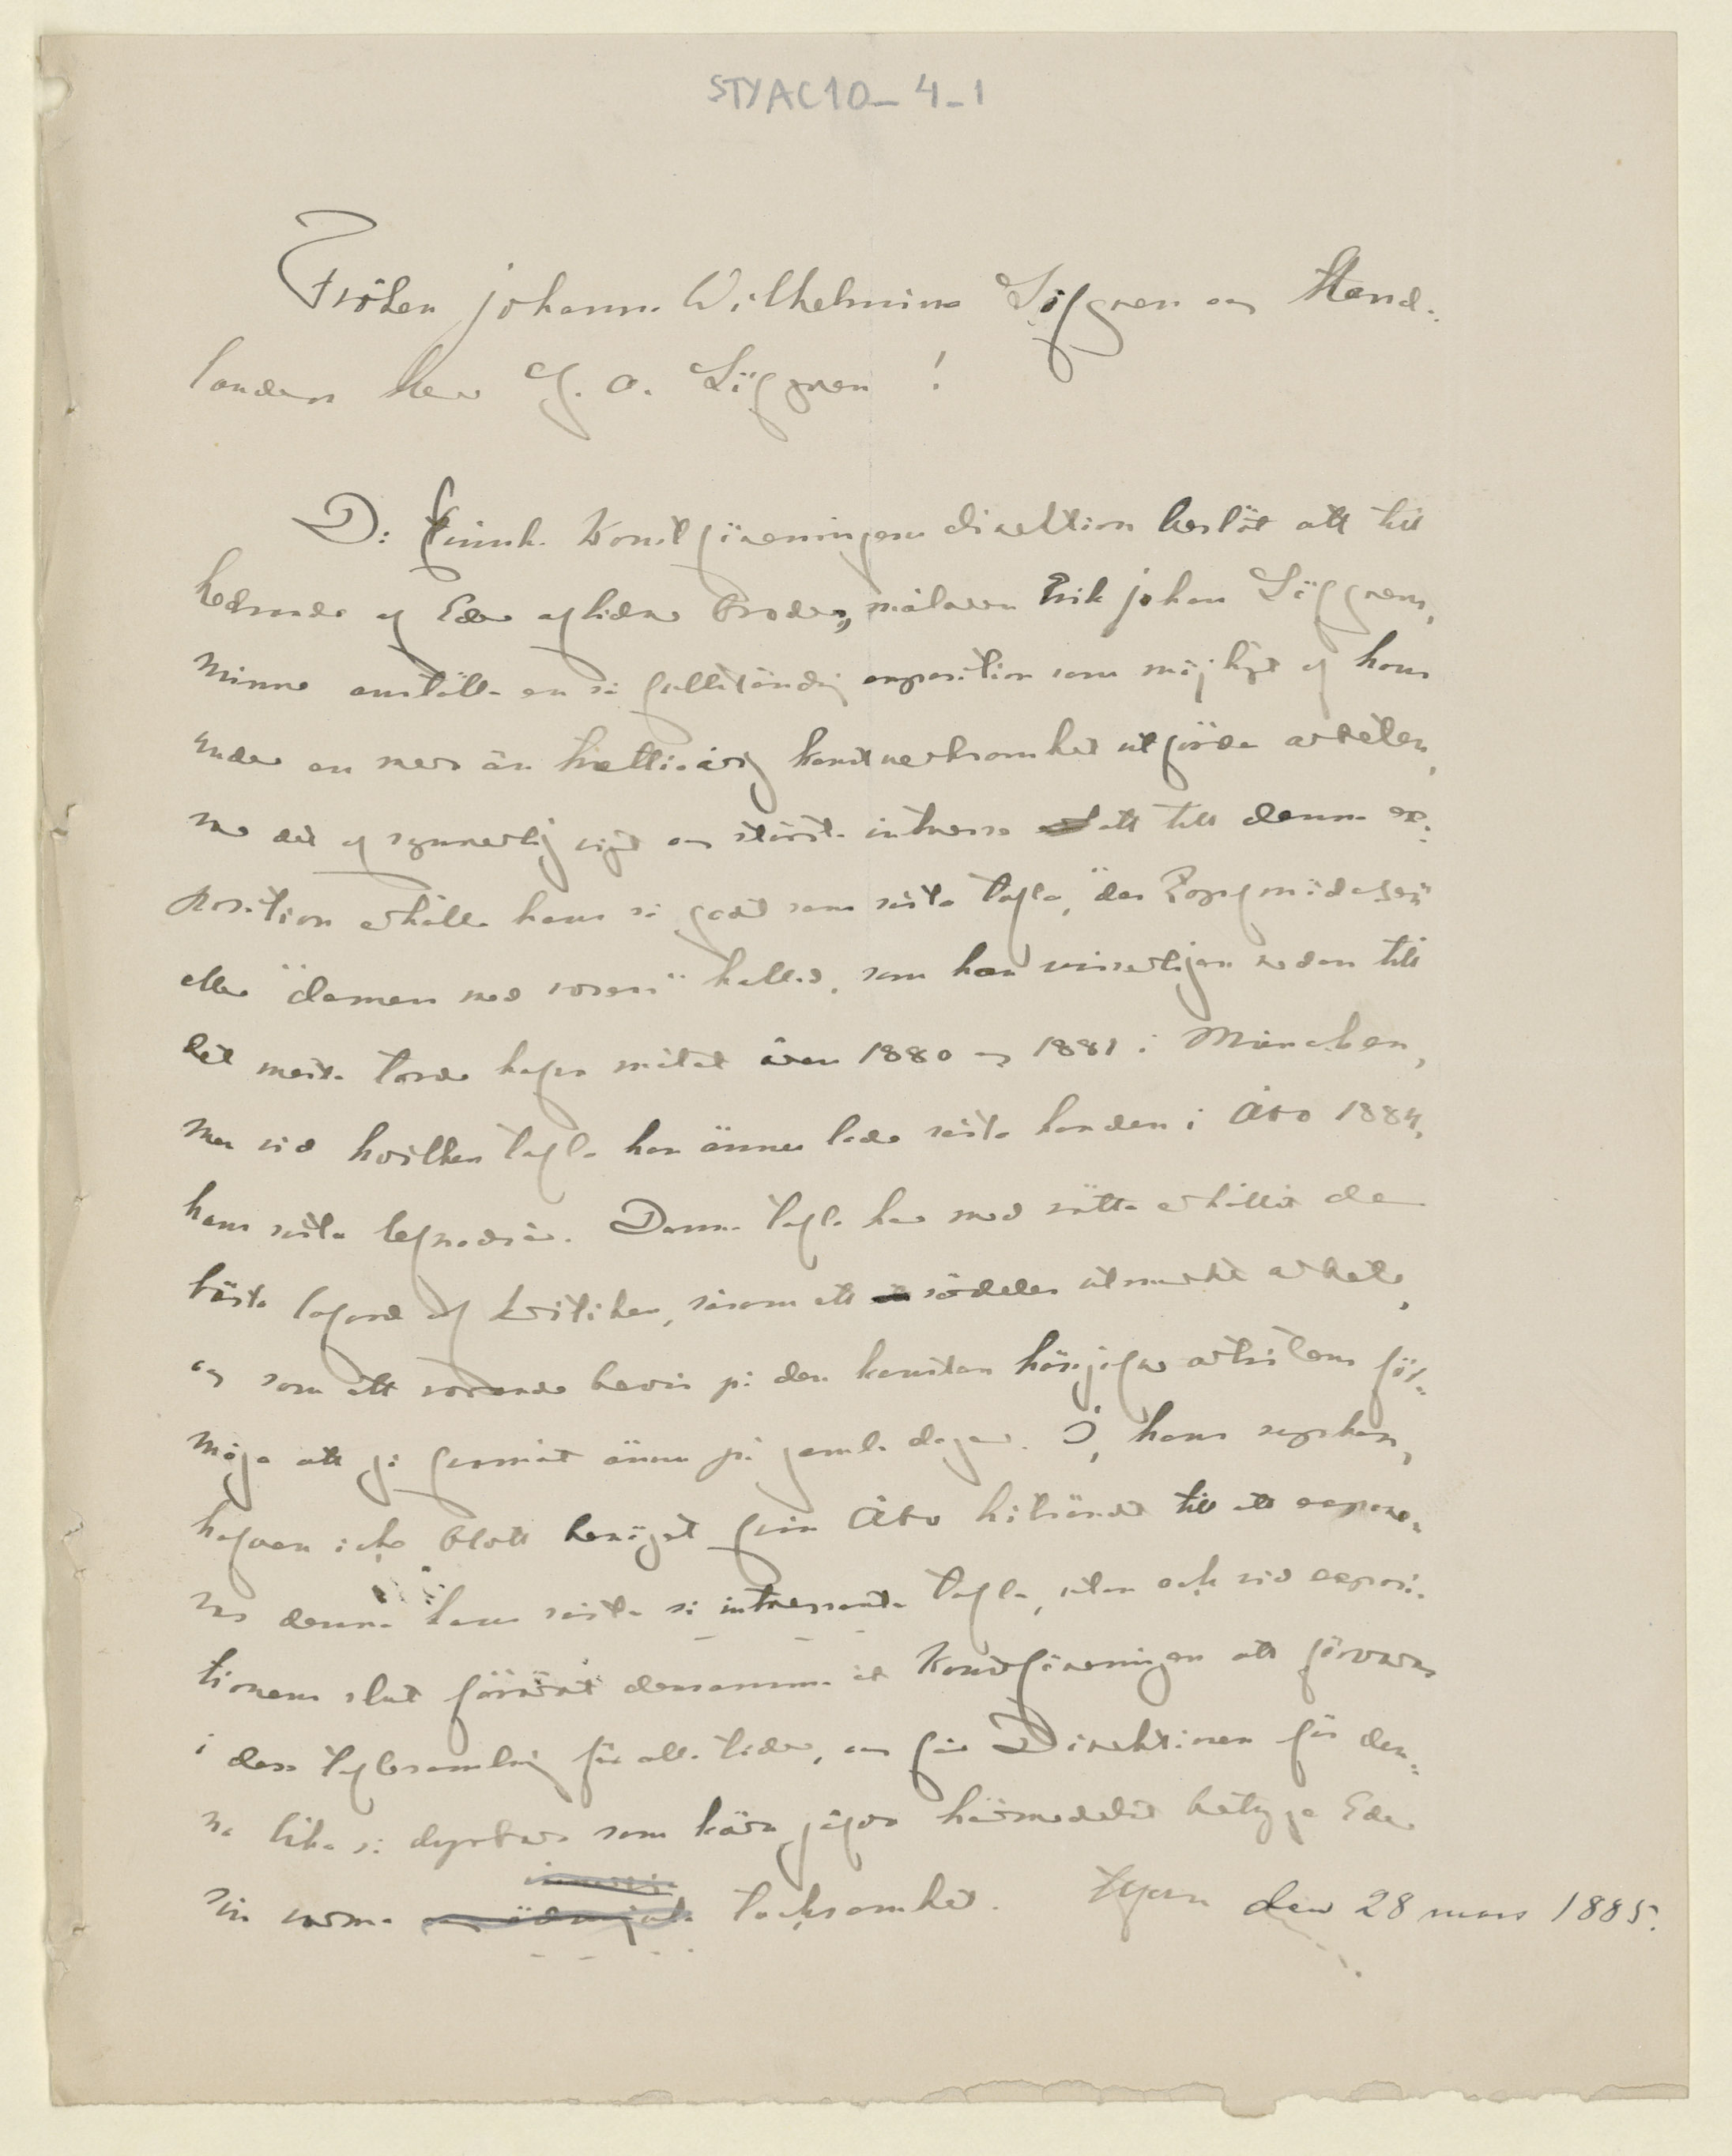 STYAC10_4_1
Fröken Johanna Wilhelmina Löfgren och Hand-
landen Herr G. A. Löfgren!
Då Finska Konstföreningens direktion beslöt att till
hedrande af Eder aflidne Broders, målaren Erik Johan Löfgrens,
minne anställa en så fullständig exposition som möjligt af hans
under en mer än trettioårig konstverksamhet utförda arbeten,
var det af synnerlig vigt och största intresse att till denna ex-
position erhålla hans så godt som sista tafla,
eller "damen med rosen" kallad, som han visserligen redan till
det mesta torde hafva målat åren 1880 och 1881 i München,
men vid hvilken tafla han ännu lade sista handen i Åbo 1884,
hans sista lefnadsår. Denna tafla har med rätta erhållit de
bästa loford af kritiken, såsom ett särdeles utmärkt arbete,
och som ett rörande bevis på den konsten hängifne artistens för-
måga att gå framåt ännu på gamla dagar. I, hans syskon,
hafven icke blott benäget från Åbo hitsändt till att expone-
ras denna hans sista så intressanta tafla, utan ock vid exposi-
tionens slut förärat densamma åt Konstföreningen att förvaras
i dess taflesamling för alla tider, och får Direktionen för den-
na lika så dyrbara som kära gåfva härmedelst betyga Eder
sin varma tacksamhet. H:fors den 28 mars 1885.